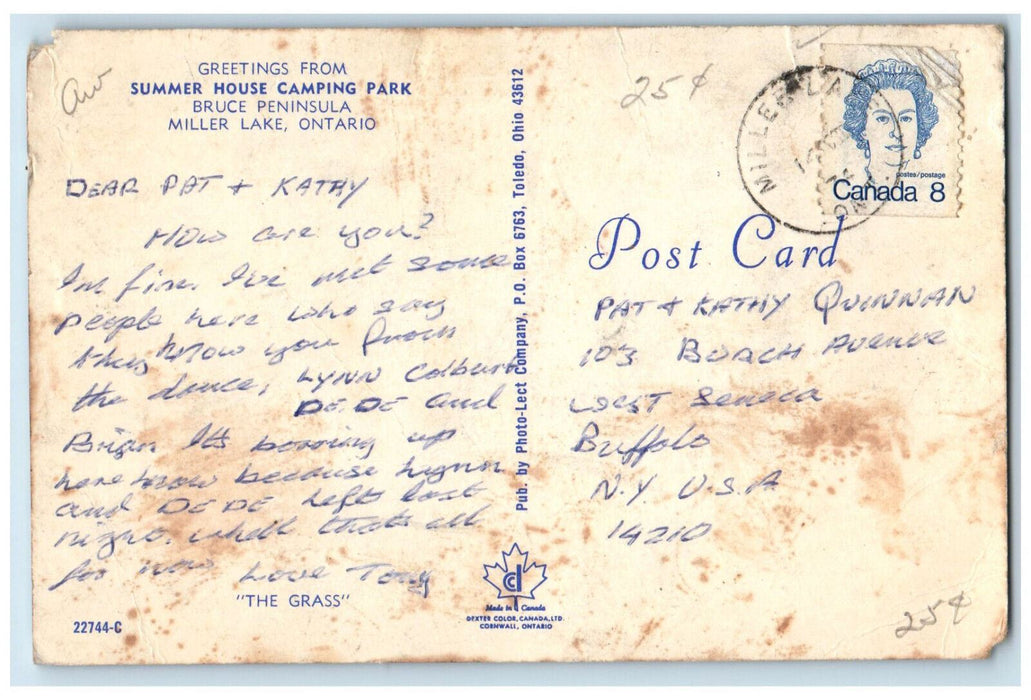 GREETINGS FROM
SUMMER HOUSE CAMPING PARK
BRUCE PENINSULA
MILLER LAKE, ONTARIO
DEAR PAT + KATHY
How are you?
Im fin. I've met some
people here who say
they know you from
the dance, LYNN Colburn
DEDE and
Brian Its borring up
here know because lynn
and DEDE left last
night. whell that's all
for now Love Tony
"THE GRASS"
22744-C
Pub. by Photo-Lect Company, P.O. Box 6763, Toledo, Ohio 43612
Made in Canada
DEXTER COLOR, CANADA, LTD.
CORNWALL, ONTARIO
25¢
MILLER LA
ON
postes/postage
Canada 8
Post Card
PAT + KATHY QUINNAN
103 Avenue
West Seneca
Buffalo
N.Y. U.S.A
14210
25¢